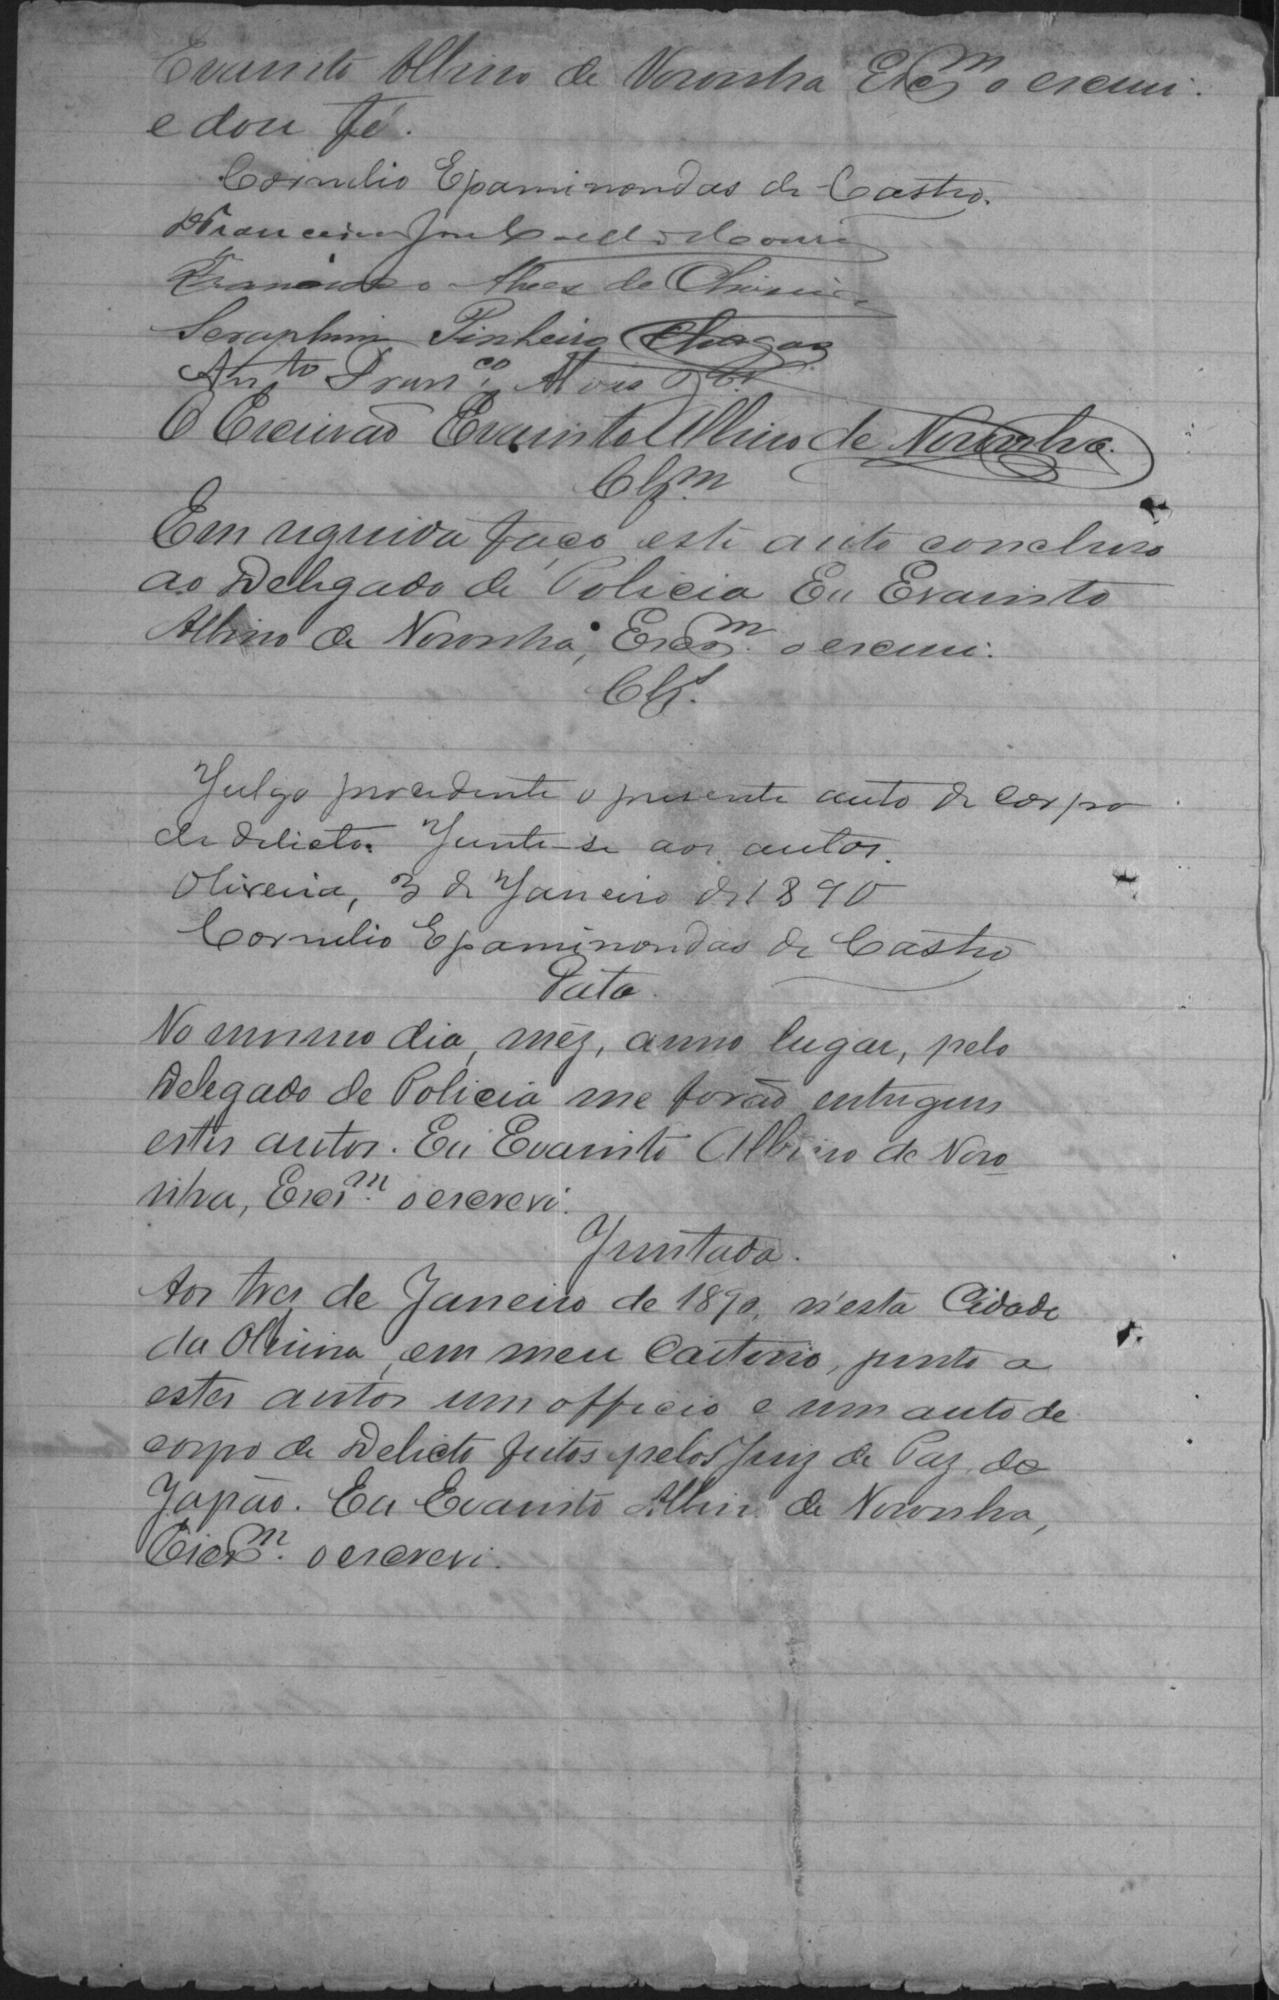 Evaristo Albino de Noronha Escm o escrevi.
e dou fé.
Cornelio Epaminondas de Castro.
Francisco José
Francisco Alves de Oliveira
Seraphim Pinheiro Chagas
Anto Franco Alves
O Escrivão Evaristo Albino de Noronha.
Clzm
Em seguida faço este auto concluso
ao Delegado de Policia Eu Evaristo
Albino de Noronha, Escm. o escrevi.
Clzs.
Julgo procedente o presente auto de corpo
de delicto. Junte-se aos autos.
Oliveira, 3 de Janeiro de 1890
Cornelio Epaminondas de Castro
Data.
No mesmo dia, mez, anno lugar, pelo
Delegado de Policia me forão entregues
estes autos. Eu Evaristo Albino de Noro
nha, Escrm. o escrevi.
Juntada.
Aos tres de Janeiro de 1890, n'esta Cidade
da Oliveira, em meu Cartorio, junto a
estes autos um officio e um auto de
corpo de Delicto feitos pelo Juiz de Paz do
Japão. Eu Evaristo Albino de Noronha,
Escrm. o escrevi.